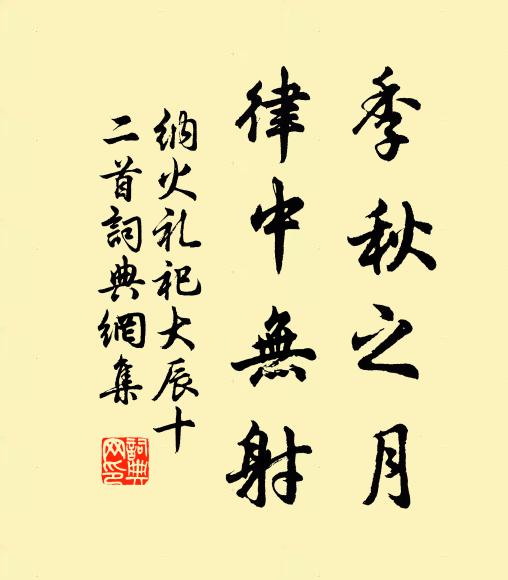 季秋之月
律中無射
纳火礼祀大辰十
二首詞典網集
詞典网印